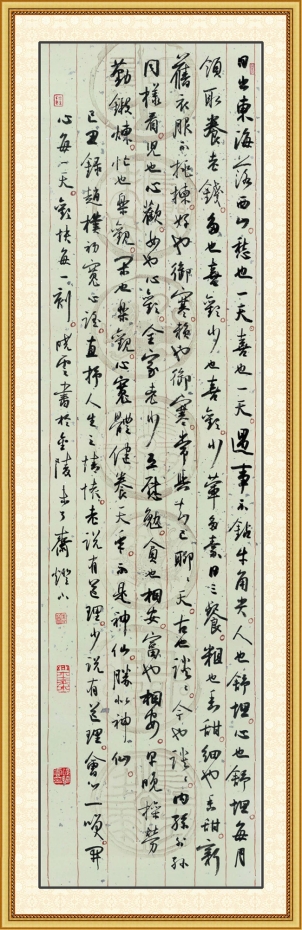 日出東海落西山愁也一天喜也一天遇事不鑽牛角尖人也舒坦心也舒坦每月
領取養老錢多也喜歡少也喜歡少葷多素日三餐粗也香甜細也香甜新
舊衣服不挑揀好也御寒賴也御寒常與知己聊聊天古也談談今也談談內孫外孫
同樣看兒也心歡女也心歡全家老少互慰勉貧也相安富也相安早晚操勞
勤鍛煉忙也樂觀閑也樂觀心寬體健養天年不是神仙勝似神仙
己丑錄趙樸初寬心謠直抒人生之情懷老說有道理少說有道理會心一頌開
心每一天歡快每一刻曉雲書於金陵